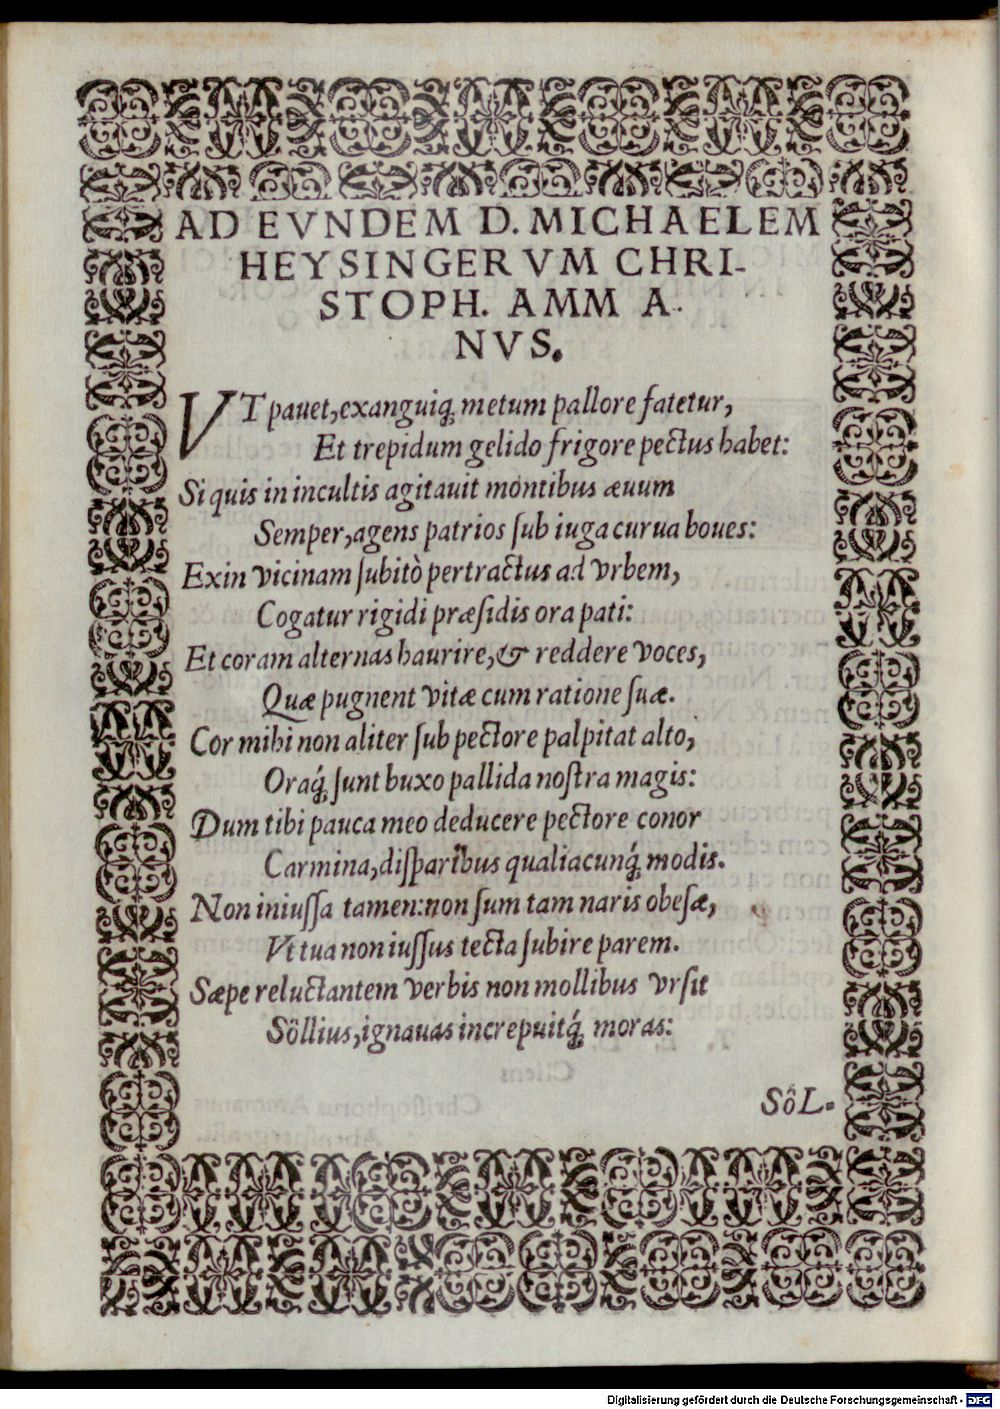 AD EVNDEM D. MICHAELEM
HEYSINGERVM CHRI-
STOPH. AMMA-
NVS.
VT pauet, exanguiq́; metum pallore fatetur,
Et trepidum gelido frigore pectus habet:
Si quis in incultis agitauit montibus æuum
Semper, agens patrios ſub iuga curua boues:
Exin vicinam ſubitò pertractus ad vrbem,
Cogatur rigidi præſidis ora pati:
Et coram alternas haurire, & reddere voces,
Quæ pugnent vitæ cum ratione ſuæ.
Cor mihi non aliter ſub pectore palpitat alto,
Oraq́; ſunt buxo pallida noſtra magis:
Dum tibi pauca meo deducere pectore conor
Carmina, diſparibus qualiacunq́; modis.
Non iniuſſa tamen: non ſum tam naris obeſæ,
Vt tua non iuſſus tecta ſubire parem.
Sæpe reluctantem verbis non mollibus vrſit
Sôllius, ignauas increpuitq́; moras:
SôL-
Digitalisierung gefördert durch die Deutsche Forschungsgemeinschaft - DFG